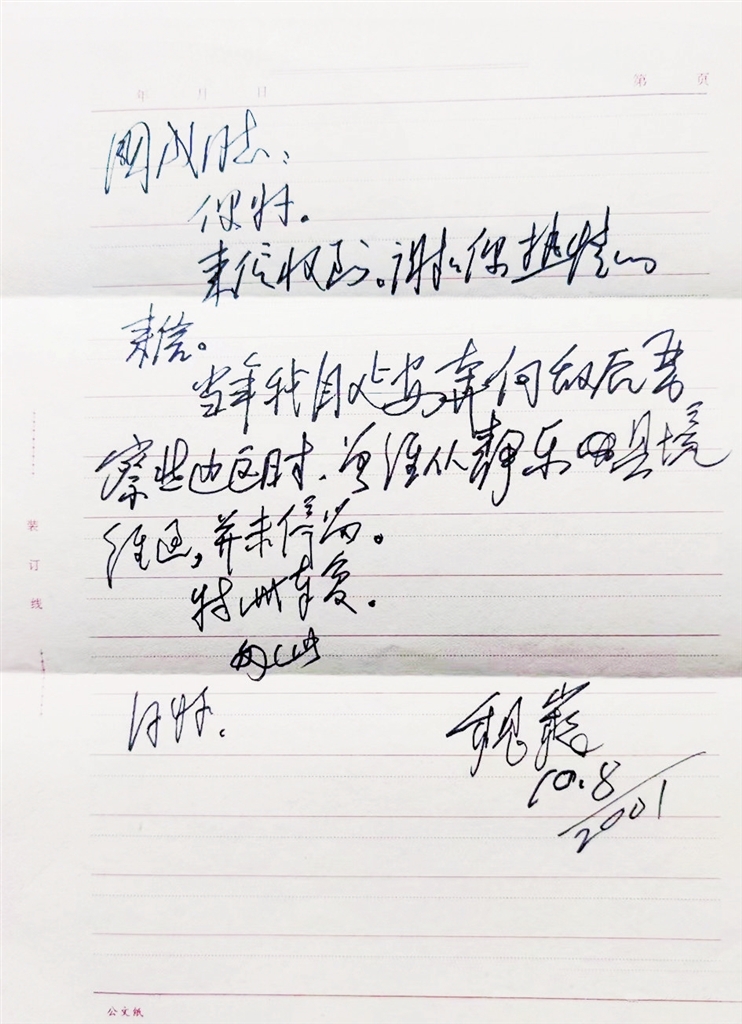 年 月 日
第 页
国成同志：
你好。
来信收到。谢谢你热情的
来信。
当年我自延安奔向敌后晋
察冀边区时，曾经从静乐县境
经过，并未停留。
特此奉复。
匆此
问好。
魏巍
10.8
2001
装订线
公文纸